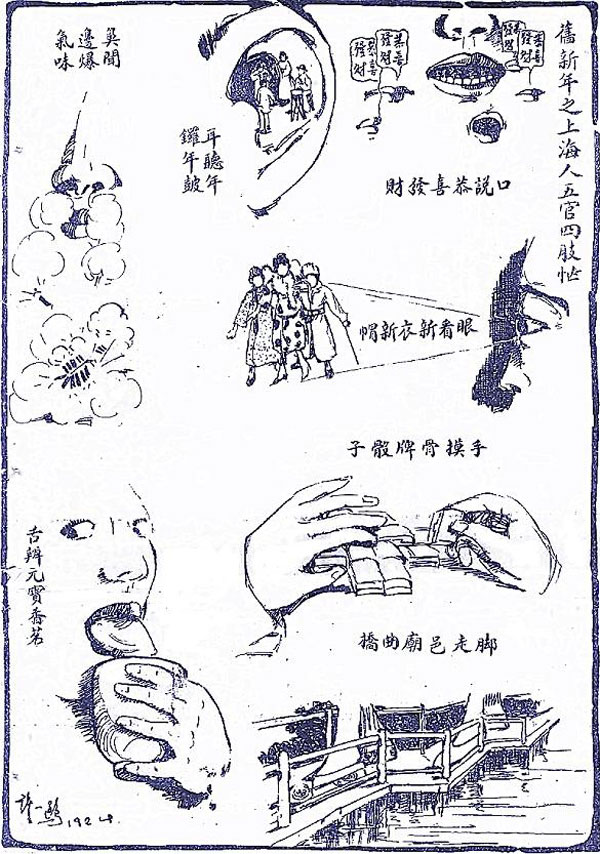 舊新年之上海人五官四肢忙
恭喜
發財
恭喜
發財
恭喜
發財
恭喜
發財
口說恭喜發財
耳聽年
鑼年皷
鼻聞
邊爆
氣味
眼看新衣新帽
手摸骨牌骰子
脚走邑廟曲橋
舌辨元寳香茗
1924